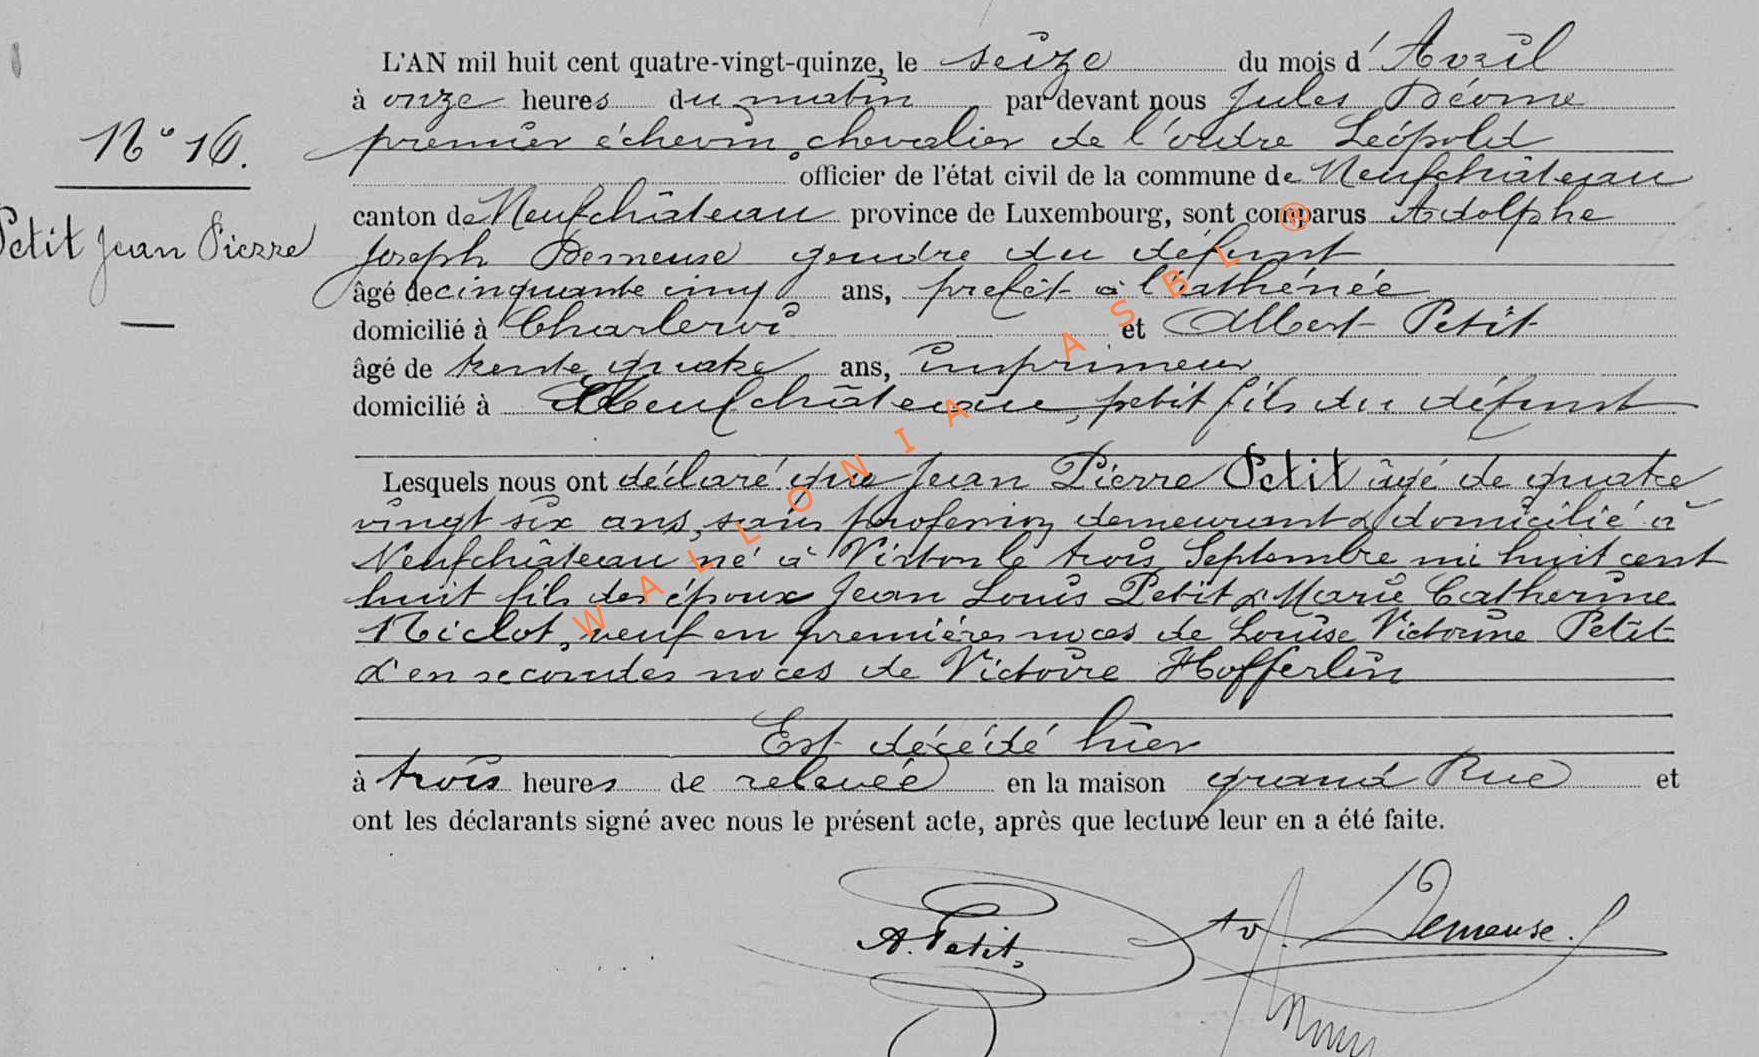 N° 16.
Petit Jean Pierre
L'AN mil huit cent quatre-vingt-quinze, le seize du mois d'Avril
à onze heures du matin par devant nous Jules Déome
premier échevin, chevalier de l'ordre Léopold
officier de l'état civil de la commune de Neufchâteau
canton de Neufchâteau province de Luxembourg, sont comparus Adolphe
Joseph Demeuse gendre du défunt
âgé de cinquante cinq ans, prefêt à l'athénée
domicilié à Charleroi et Albert Petit
âgé de trente quatre ans, imprimeur
domicilié à Neufchâteau, petit fils du défunt
Lesquels nous ont déclaré que Jean Pierre Petit âgé de quatre
vingt six ans, sans profession, demeurant & domicilié à
Neufchâteau né à Virton le trois Septembre mi huit cent
huit fils des époux Jean Louis Petit & Marie Catherine
Niclot, veuf en premières noces de Louise Victorine Petit
& en secondes noces de Victoire Hofferlin
Est décédé hier
à trois heures de relevée en la maison grand Rue et
ont les déclarants signé avec nous le présent acte, après que lecture leur en a été faite.
A. Petit, Ad. Demeuse.
WALLONIA ASBL ®